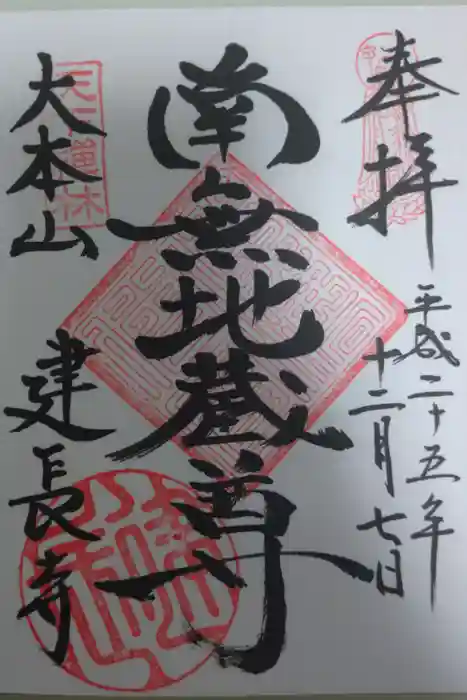 奉拝
平成二十五年
十二月七日
南無地蔵尊
大本山
建長寺